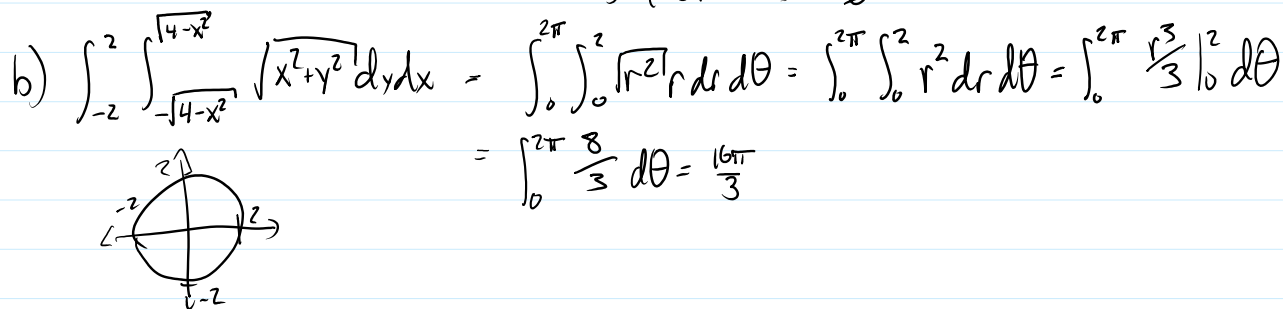 b) ∫_{-2}^{2} ∫_{-√(4-x²)}^{√(4-x²)} √(x²+y²) dydx = ∫_0^{2π} ∫_0^2 √(r²) r dr dθ = ∫_0^{2π} ∫_0^2 r² dr dθ = ∫_0^{2π} r³/3 |_0^2 dθ
= ∫_0^{2π} 8/3 dθ = 16π/3
2
-2
2
-2